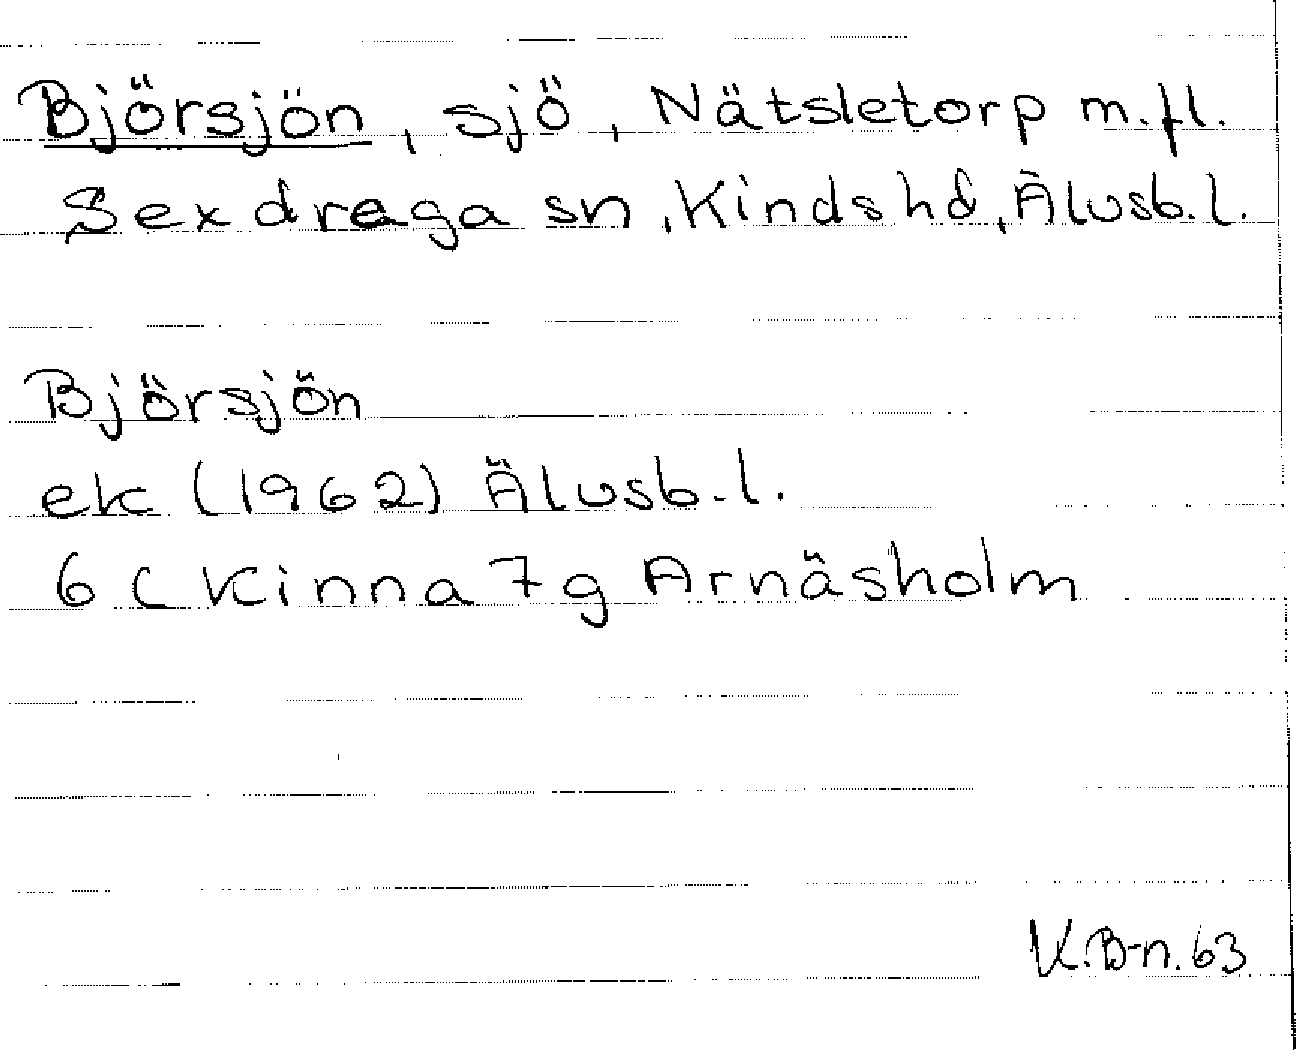 Björsjön, sjö, Nätsletorp m.fl.
Sexdrega sn, Kinds hd, Älvsb.l.
Björsjön
ek (1962) Älvsb.l.
6 C Kinna 7g Arnäsholm
K.B-n. 63